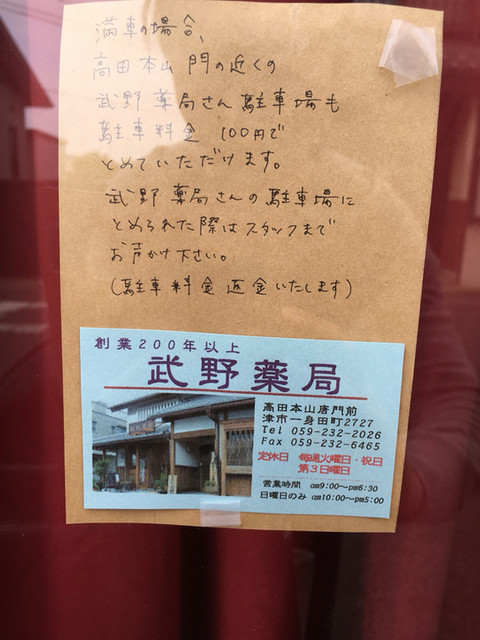 満車の場合、
高田本山 門の近くの
武野薬局さん駐車場も
駐車料金 100円で
とめていただけます。
武野薬局さんの駐車場に
とめられた際はスタッフまで
お声かけ下さい。
(駐車料金返金いたします)
創業200年以上
武野薬局
高田本山唐門前
津市一身田町2727
Tel 059-232-2026
Fax 059-232-6465
定休日 毎週火曜日・祝日
第3日曜日
営業時間 am9:00～pm6:30
日曜日のみ am10:00～pm5:00